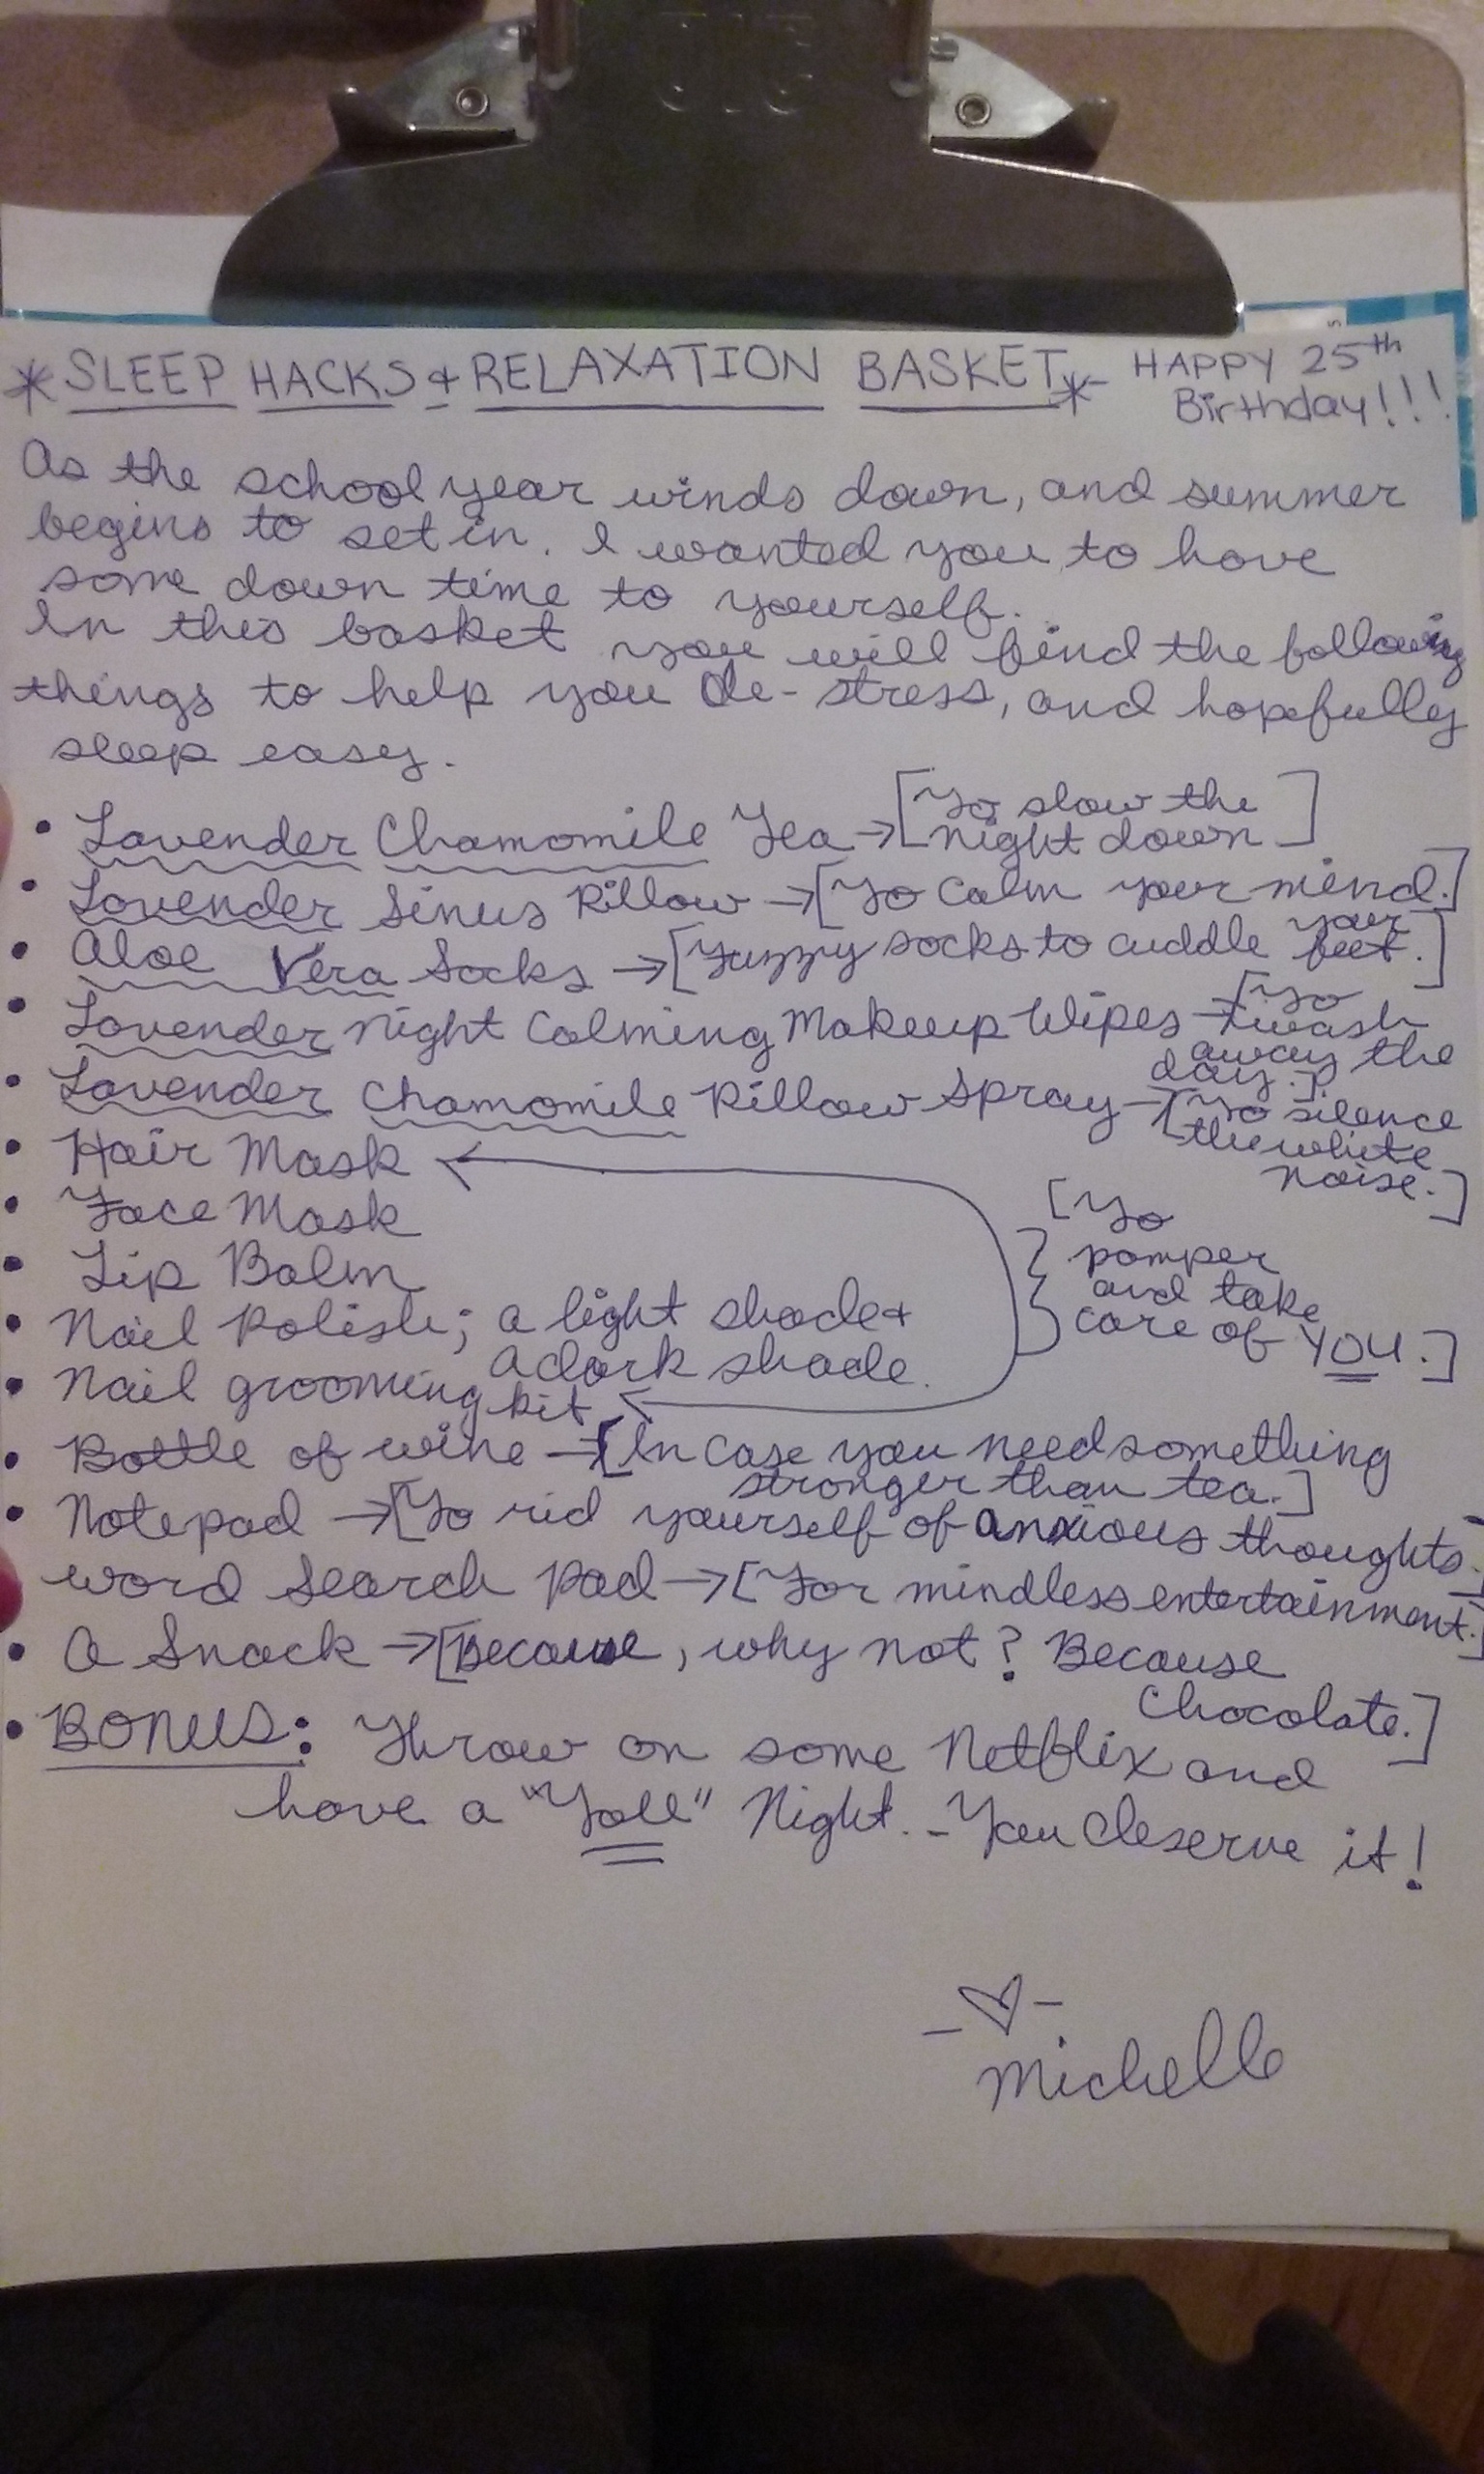 *SLEEP HACKS & RELAXATION BASKET*- HAPPY 25th
Birthday!!!
As the school year winds down, and summer
begins to set in. I wanted you to have
some down time to yourself.
In this basket you will find the following
things to help you de-stress, and hopefully
sleep easy.
• Lavender Chamomile Tea → [To slow the
night down]
• Lavender Sinus Pillow → [To calm your mind.]
• Aloe Vera Socks → [Fuzzy socks to cuddle your
feet.]
• Lavender Night Calming Makeup Wipes → [To
wash
away the
day.]
• Lavender Chamomile Pillow Spray → [To silence
the white
noise.]
• Hair Mask
• Face Mask
• Lip Balm
• Nail Polish; a light shade &
a dark shade.
• Nail grooming kit
[To
pamper
and take
care of YOU.]
• Bottle of wine → [In case you need something
stronger than tea.]
• Notepad → [To rid yourself of anxious thoughts.]
word search pad → [For mindless entertainment.]
• A Snack → [Because, why not? Because
Chocolate.]
• BONUS: Throw on some Netflix and
have a "You" Night. - You deserve it!
-♡-
Michelle